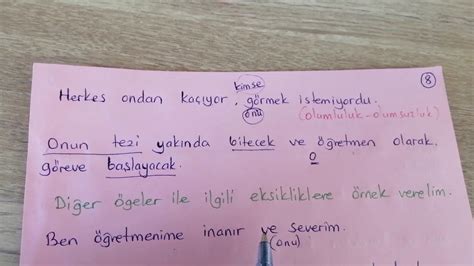 8
kimse
Herkes ondan kaçıyor, görmek istemiyordu.
onu (olumluluk-olumsuzluk)
Onun tezi yakında bitecek ve öğretmen olarak
o
göreve başlayacak.
Diğer ögeler ile ilgili eksikliklere örnek verelim.
Ben öğretmenime inanır ve severim.
(onu)